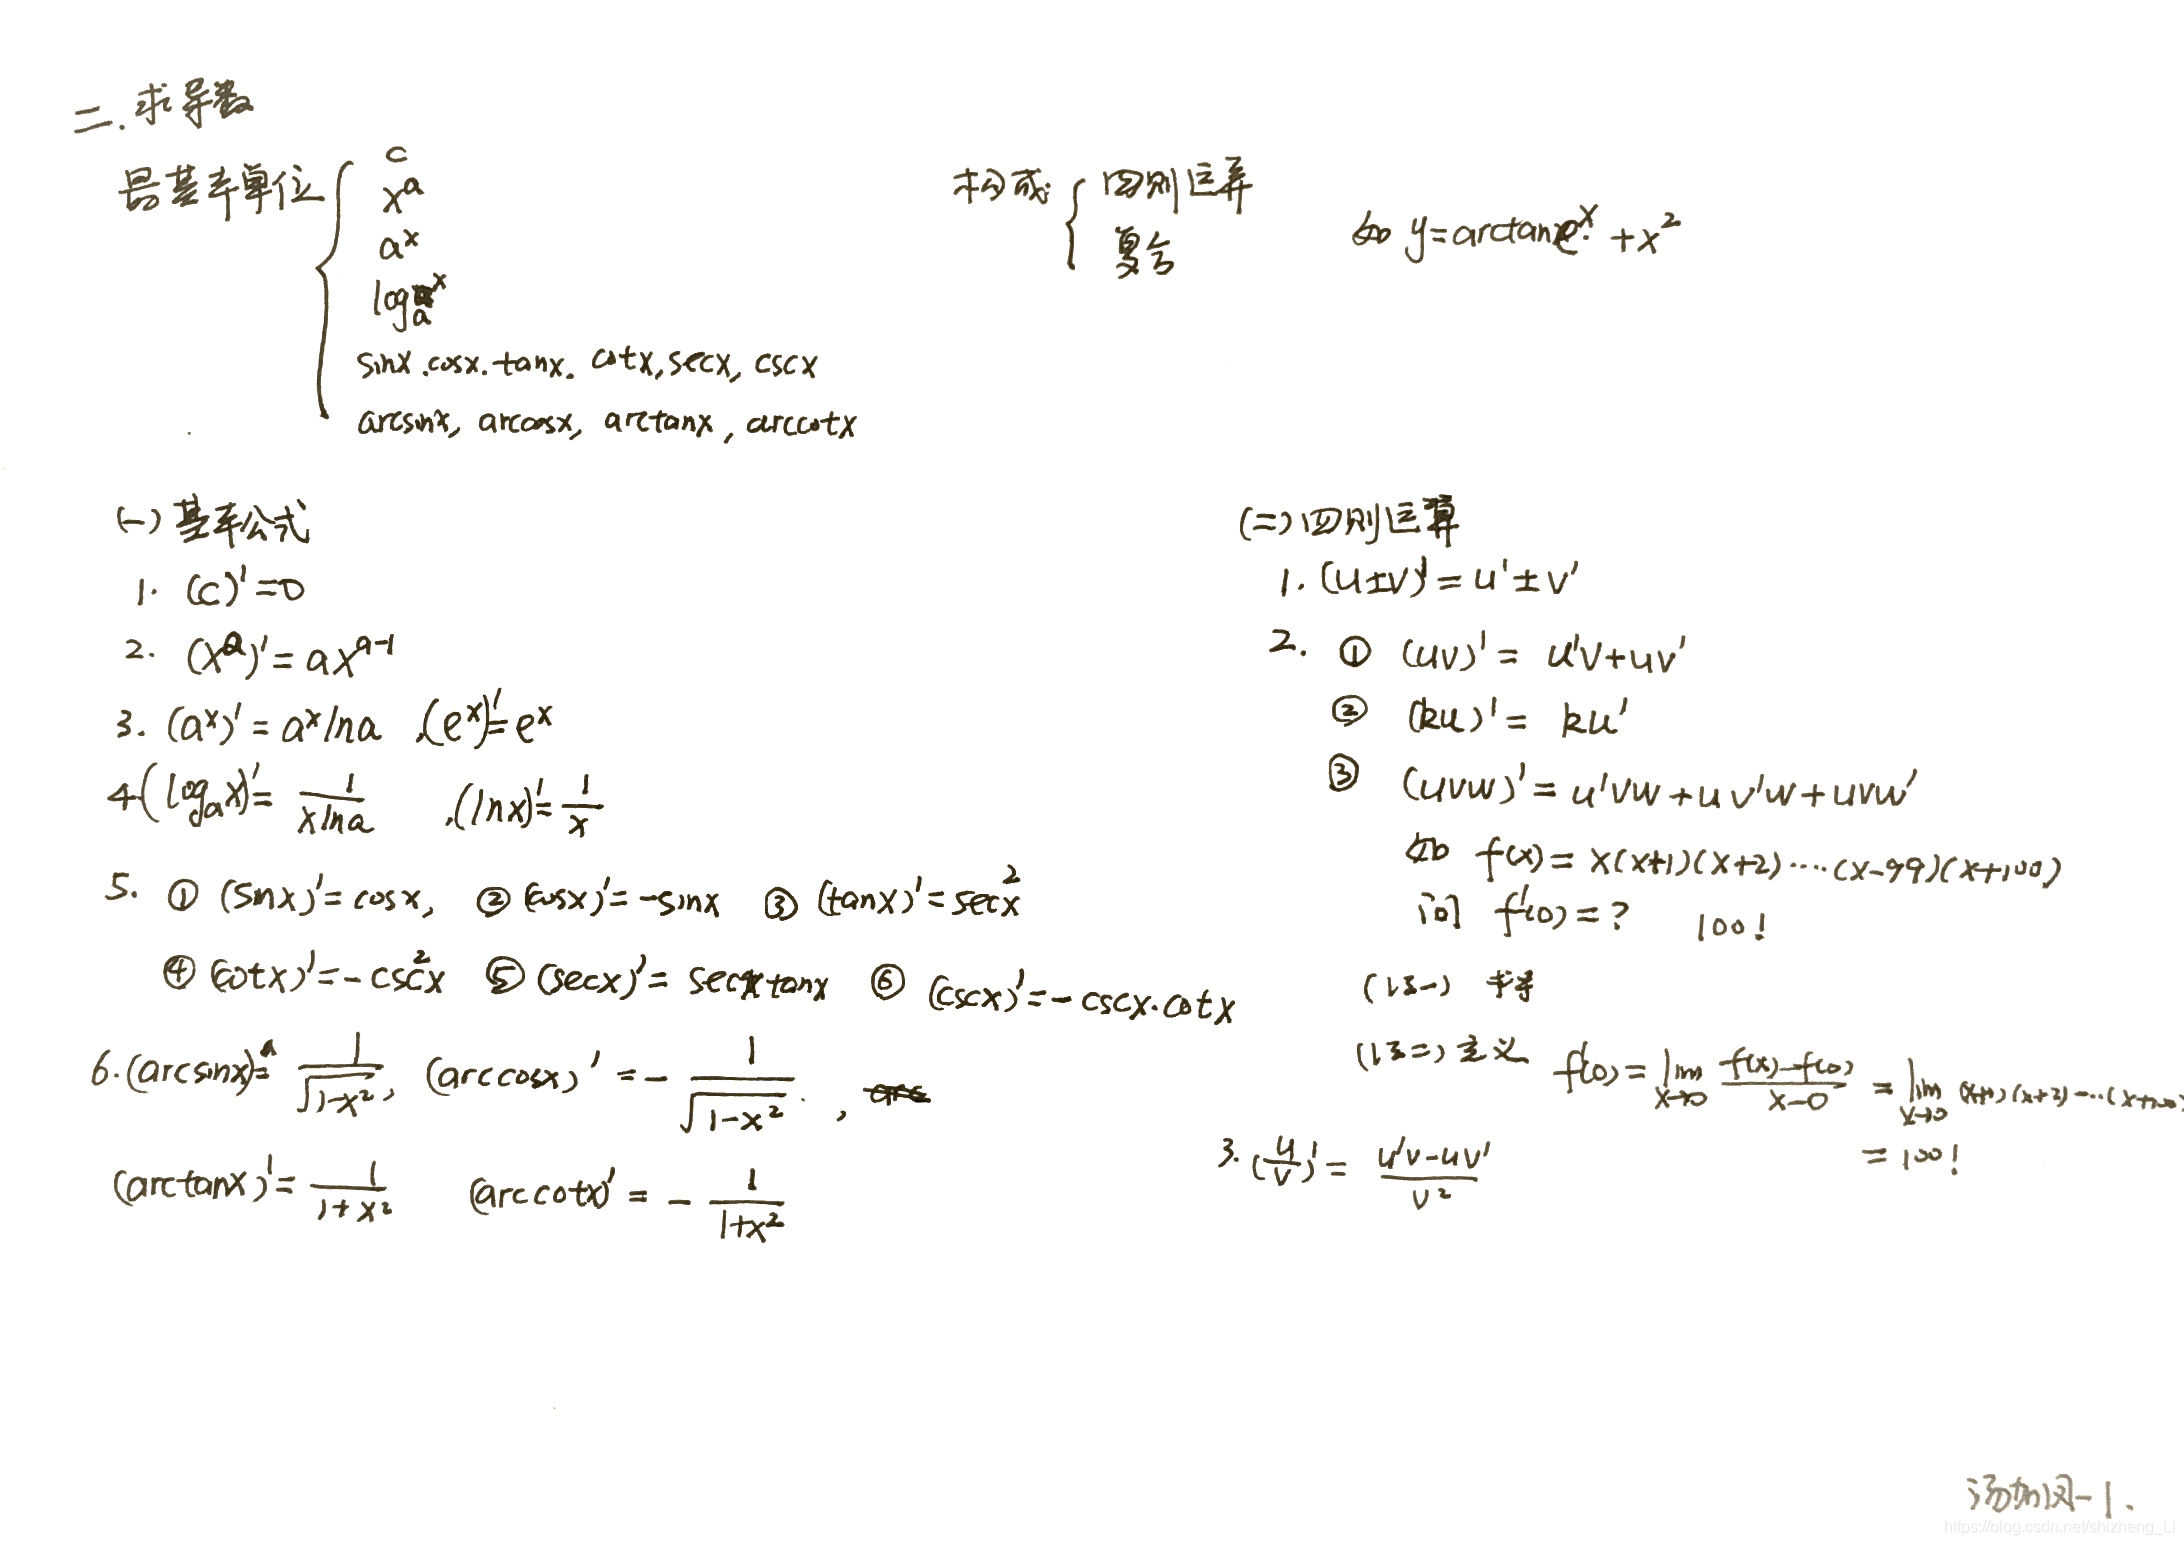 二. 求导数
最基本单位
c
x^a
a^x
log_a x
sinx . cosx . tanx . cotx, secx, cscx
arcsinx, arccosx, arctanx, arccotx
构成
四则运算
复合
如 y=arctan e^x + x^2
(一) 基本公式
1. (c)'=0
2. (x^a)'= ax^(a-1)
3. (a^x)' = a^x lna , (e^x)'= e^x
4 (log_a x)'= 1/(xlna) , (lnx)'= 1/x
5. ① (sinx)'= cosx, ② (cosx)'= -sinx ③ (tanx)'= sec^2 x
④ (cotx)'= -csc^2 x ⑤ (secx)'= secx tanx ⑥ (cscx)'= -cscx·cotx
6. (arcsinx)'= 1/√(1-x^2), (arccosx)' = - 1/√(1-x^2) ,
(arctanx)'= 1/(1+x^2) (arccotx)' = - 1/(1+x^2)
(二) 四则运算
1. (u±v)'= u'±v'
2. ① (uv)' = u'v+uv'
② (ku)' = ku'
③ (uvw)'= u'vw+uv'w+uvw'
如 f(x)= x(x+1)(x+2)····(x-99)(x+100)
问 f'(0)=? 100!
(法一) 求导
(法二) 定义 f'(0)= lim x→0 (f(x)-f(0))/(x-0) = lim x→0 (x+1)(x+2)····(x+100)
= 100!
3. (u/v)'= (u'v-uv')/v^2
汤加凤-1.
https://blog.csdn.net/shizheng_Li